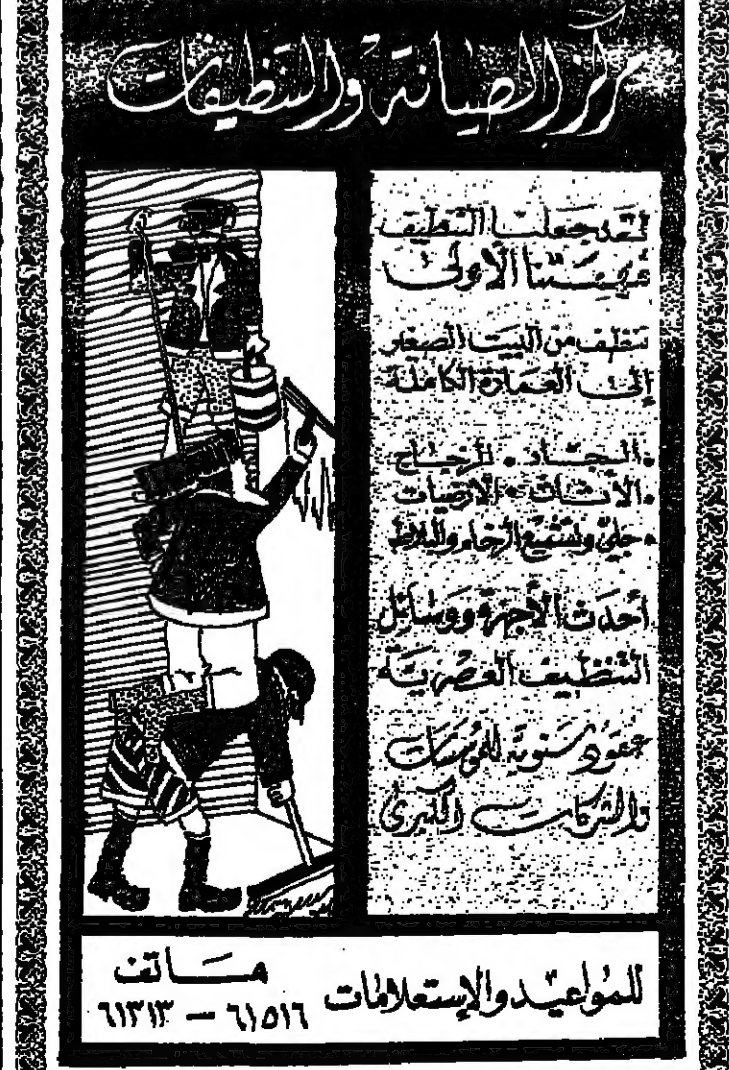 مركز الصيانة والتنظيفات
لقد جعلنا التنظيف
مهمتنا الأولى
ننظف من البيت الصغير
إلى العمارة الكاملة
• السجاد • الزجاج
• الأثاث • الأرضيات
• جلي وتشميع الرخام والبلاط
أحدث الأجهزة ووسائل
التنظيف العصرية
عقود سنوية للمؤسسات
والشركات الكبرى
للمواعيد والإستعلامات هاتف
٦١٥١٦ – ٦١٣١٣